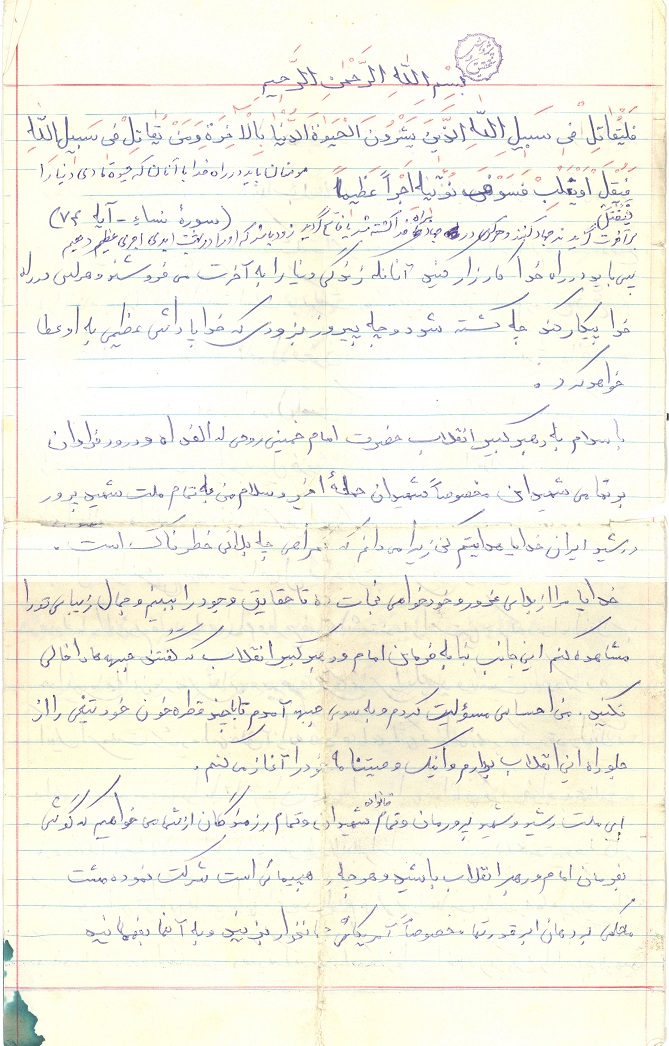 بِسْمِ اللهِ الرَّحْمٰنِ الرَّحیم
فَلْیُقاتِلْ فی سَبیلِ اللهِ الَّذینَ یَشْرُونَ الْحَیٰوةَ الدُّنْیا بِالْآخِرَةِ وَمَنْ یُقاتِلْ فی سَبیلِ اللهِ
فَیُقْتَلْ اَوْیَغْلِبْ فَسَوْفَ نُؤْتیهِ اَجْراً عَظیماً
مومنان باید در راه خدا با آنان که حیوة مادی دنیا را
(سورهٔ نساء - آیه ۷۴)
بر آخرت گزیدند جهاد کنند و هر کس در جهاد راه خدا کشته شد یا فاتح گردید زود باشد که او را در بهشت ابدی اجری عظیم دهیم
پس باید در راه خدا کارزار کنید آنانکه زندگی دنیا را به آخرت می فروشند و هر کس در راه
خدا پیکار کند چه کشته شود و چه پیروز بزودی که خدا پاداشی عظیمی به او عطا
خواهد کرد.
با سلام به رهبر کبیر انقلاب حضرت امام خمینی روحی له الفداه و درود فراوان
بر تمامی شهیدان مخصوصاً شهیدان حملهٔ اخیر و سلام من به تمام ملت شهید پرور
و رشید ایران خدایا هدایتم کن زیرا می دانم که گمراهی چه بلائی خطرناک است.
خدایا مرا از بلای غرور و خودخواهی نجات ده تا حقایق وجود را ببینم و جمال زیبای تو را
مشاهده کنم این جانب بنا به فرمان امام و رهبر کبیر انقلاب که گفتند جبهه ها را خالی
نکنید. من احساس مسؤلیت کردم و به سوی جبهه آمدم تا با چند قطره خون خود تیغی را از
جلو راه این انقلاب بردارم و اینک وصیتنامه خود را آغاز می کنم.
ای ملت رشید و شهید پرورمان و تمام خانواده شهیدان و تمام رزمندگان از شما می خواهیم که گوش
بفرمان امام و رهبر انقلاب باشید و هر چه راهپیمائی است شرکت نموده مشت
محکمی بر دهان ابر قدرتها مخصوصاً آمریکای جهانخوار بزنید و به آنها بفهمانید